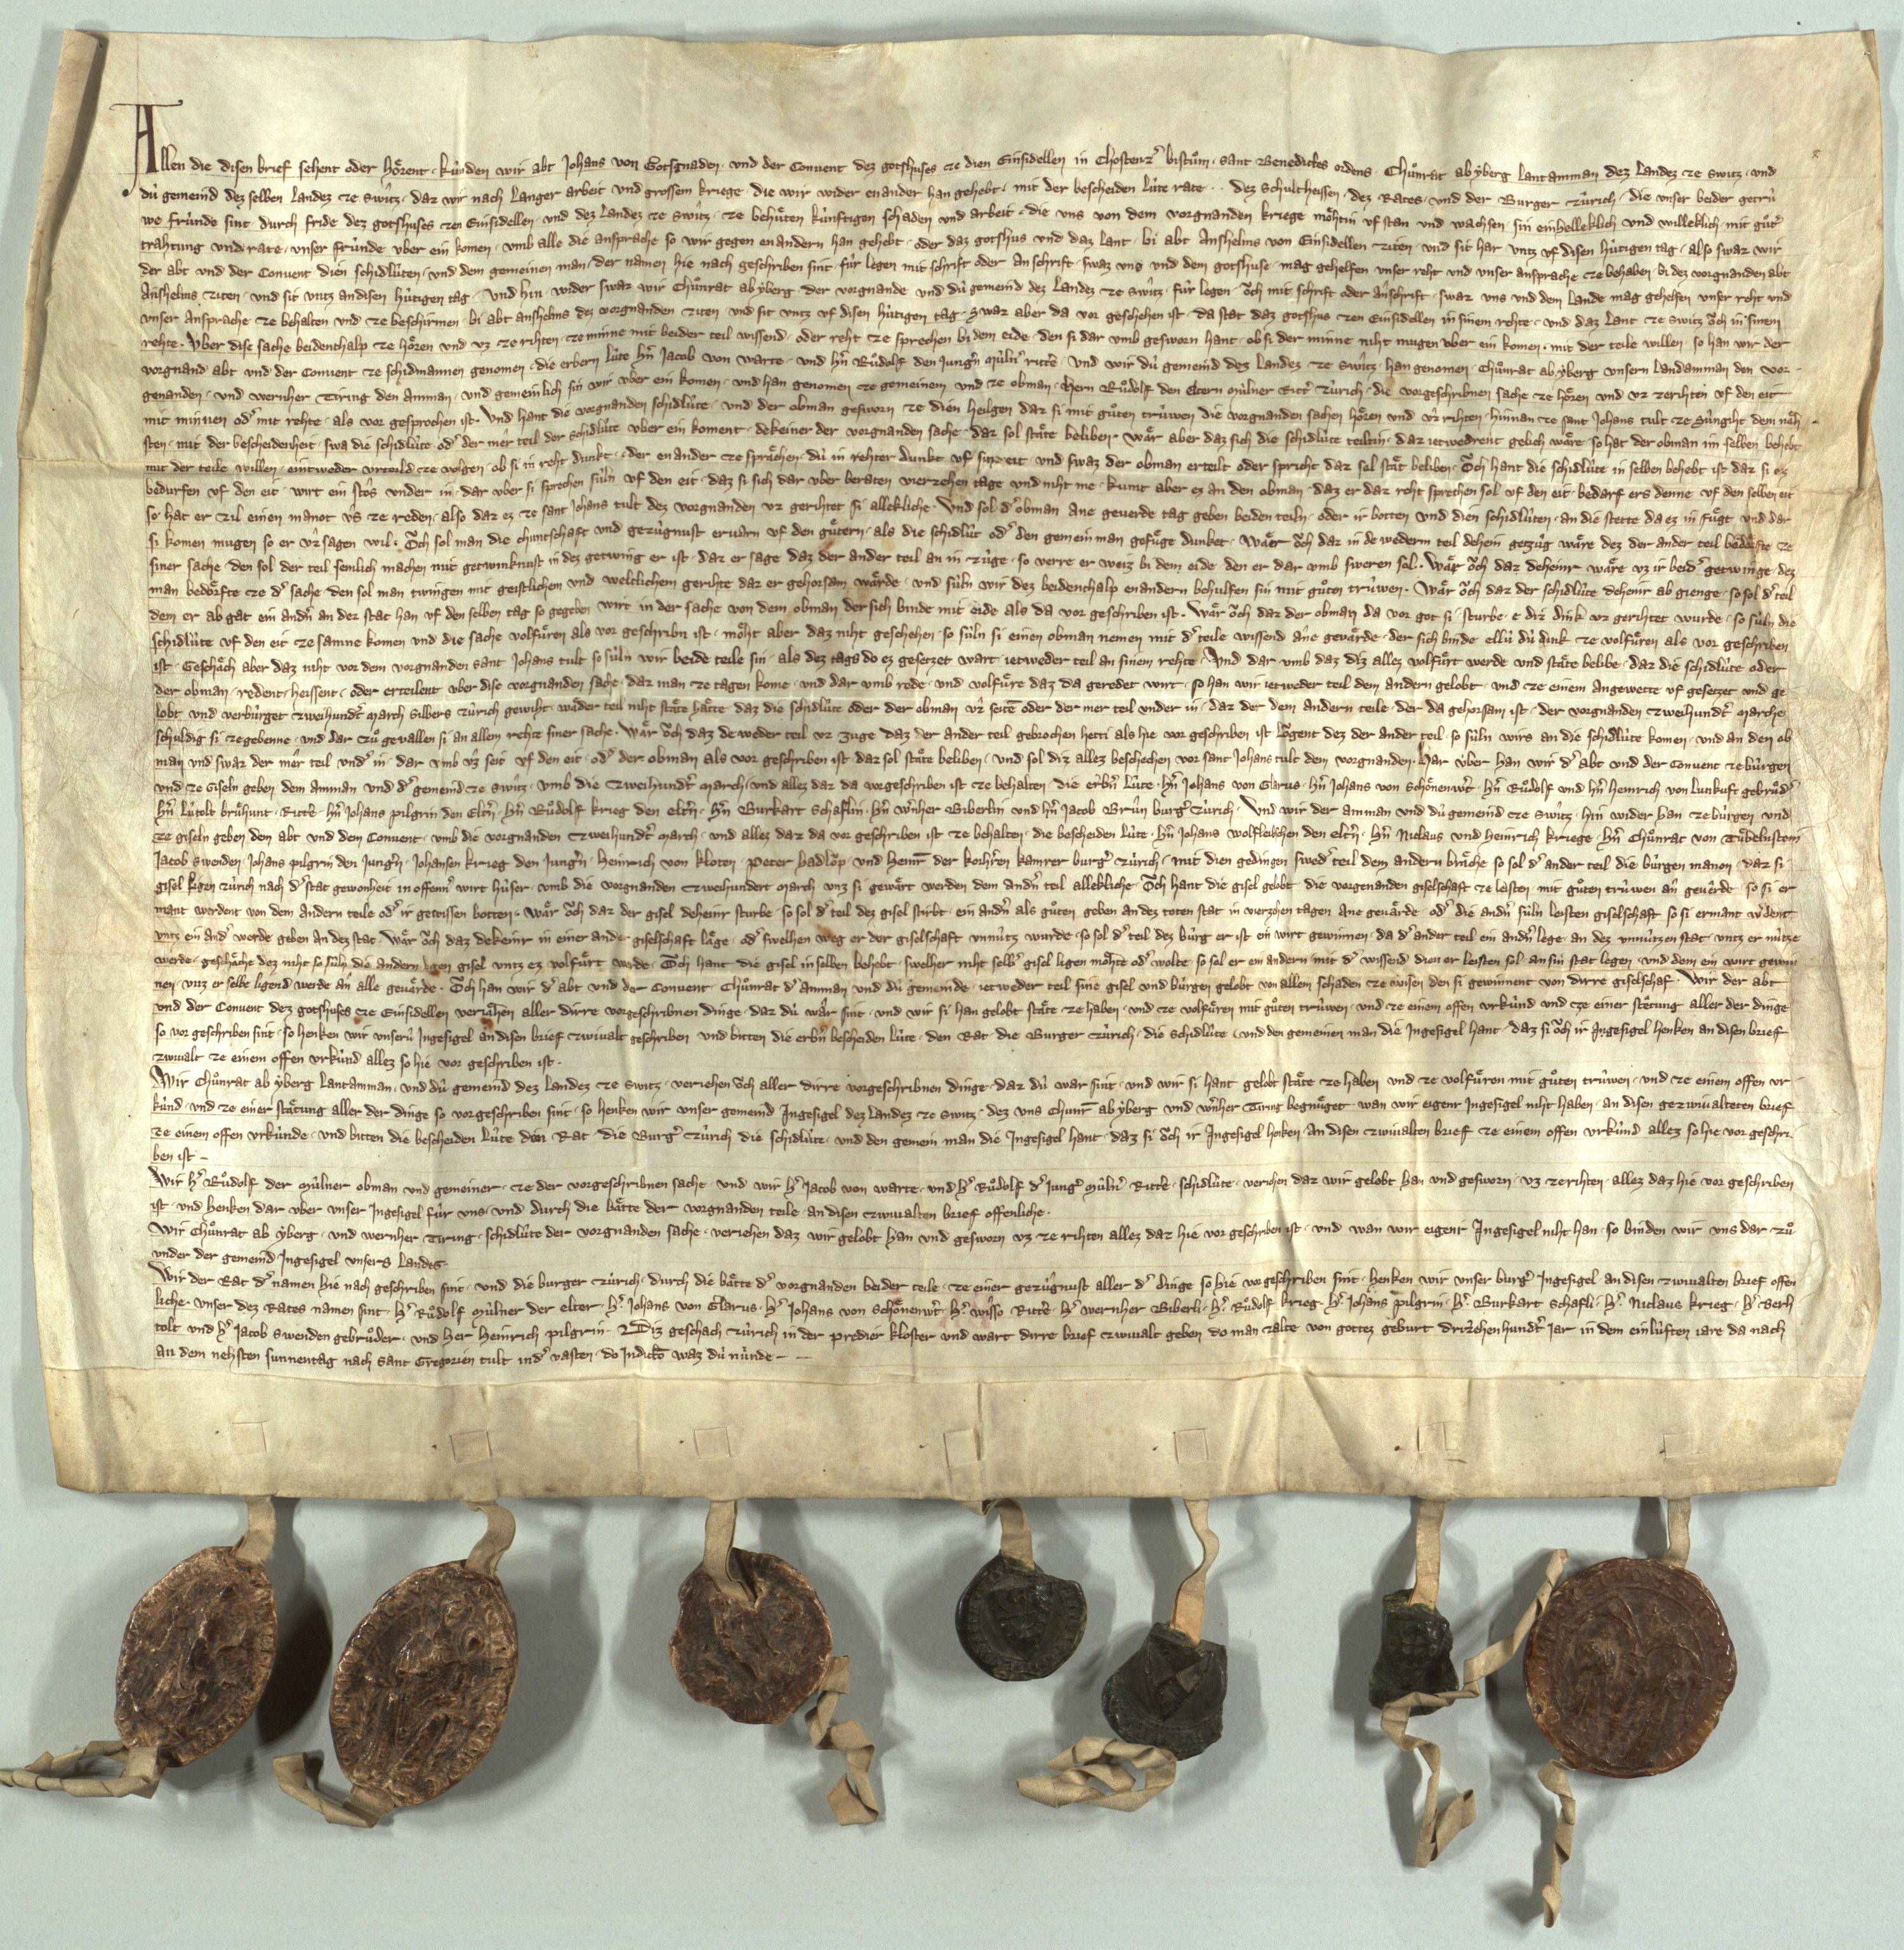 Allen die disen brief sehent oder hoͤrent · kuͥnden wir abt Johans von Gotsgnaden · und der Convent dez gotshuses ze dien Einsidellen in Chostenzer bistuͦm · sant Benedictes ordens · Chuͦnrat ab yberg Lantamman dez Landez ze Switz · und
duͥ gemeind dez selben Landez ze Switz · daz wir nach Langer arbeit und grossem kriege · die wir wider enander han gehebt · mit der bescheiden Luͥte rate · dez Schultheissen · dez Rates · und der Burger zuͥrich · die unser beider getruͥ
we fruͥnde sint durch fride dez gotshuses zen Einsidellen · und dez Landez ze Switz · ze behuͤten kuͥnftigen schaden und arbeit · die uns von dem vorgnanden kriege moͤhtin uf stan und wachsen · sin einhelleklich und willeklich mit guͦter
trahtung und rate · unser fruͥnde uber ein komen · umb alle die ansprache so wir gegen enandern han gehebt · oder daz gotshus und daz lant · bi abt Anshelms von Einsidellen ziten · und sit har untz uf disen huͥtigen tag · also swaz wir
der abt und der Convent dien schidluͥten · und dem gemeinen man · der namen hie nach geschriben sint · fuͥr legen mit schrift oder an schrift · swaz uns und dem gotshuse · mag gehelfen unser reht und unser ansprache ze behaben · bi dez vorgnanden abt
Anshelms ziten · und sit untz an disen huͥtigen tag · Und hin wider swaz wir Chuͦnrat ab yberg der vorgnande und duͥ gemeind dez Landez ze Switz · fuͥr legen oͮch mit schrift oder anschrift · swaz uns und dem lande mag gehelfen unser reht und
unser ansprache ze behalten und ze beschirmen · bi abt anshelms dez vorgnanden ziten und sit untz uf disen huͥtigen tag · Swaz aber da vor geschehen ist · da stat daz gotshus zen Einsidellen in sinem rehte · und daz lant ze Switz oͮch in sinem
rehte · Uber dise sache beidenthalp ze hoͤren und uz ze rihten · ze minne mit beider teil wissend · oder reht ze sprechen bi dem eide · den si dar umb gesworn hant · ob si der minne niht mugen uber ein komen · mit der teile willen so han wir der
vorgnand abt und der Convent ze schidmannen genomen · die erbern luͥte hern Jacob von warte · und hern Ruͦdolf den Jungern muͥlner ritter · und wir duͥ gemeind dez Landez ze Switz · han genomen · Chuͦnrat ab yberg unsern Landamman den vor
genanden · und wernher Tiring den amman · und gemeinlich sin wir uber ein komen · und han genomen ze gemeinem und ze obman · hern Ruͦdolf den eltern muͥlner Ritter zuͥrich · die vorgeschribnen sache ze hoͤren und uz zerihten uf den eit
mit minnen oder mit rehte · als vor gesprochen ist · Und hant die vorgnanden schidluͥte · und der obman gesworn ze dien heilgen daz si mit guͦten truͥwen die vorgnanden sachen hoͤren und uz rihten · hinnan ze sant Johans tult ze Sungiht dem naͤh
sten · mit der bescheidenheit · swa die schidluͥte oder der mer teil der schidluͥte uber ein koment · dekeiner der vorgnanden sache · daz sol staͤte beliben · Waͤr aber daz sich die schidluͥte teiltin · daz ietwedrent gelich waͤre · so hat der obman im selben behebt
mit der teile willen · eintweder urteild ze volgen · ob si in reht dunkt · oder en ander ze spraͤchen · duͥ in rehter dunkt uf sin eit · und swaz der obman erteilt oder spricht daz sol staͤt beliben · Oͮch hant die schidluͥte in selben behebt ist daz si ez
bedurfen uf den eit · wirt ein stoͤs under in · dar uber si sprechen suͥln uf den eit · daz si sich dar uber beraten vierzehen tage und niht me · kumt aber ez an den obman · daz er daz reht sprechen sol uf den eit · bedarf ers denne uf den selben eit
so hat er zil einen manot uͥs ze reden · also daz ez ze sant Johans tult dez vorgnanden uz gerihtet si allekliche · Und sol der obman ane geverde tag geben beiden teiln · oder ir botten und dien schidluͥten · an die stette da ez in fuͤgt und dar
si komen mugen so er uz sagen wil · Oͮch sol man die chuntschaft und gezuͥgnust ervarn uf den guͤtern · als die schidluͥt oder den gemein man gefuͤge dunket · Waͤr oͮch daz in de wederm teil dehein getzuͥg waͤre dez der ander teil bedoͤrfte ze
siner sache · den sol der teil semlich machen mit getwinknust in dez getwing er ist · daz er sage daz der ander teil an in zuͥge · so verre er weiz bi dem eide · den er dar umb sweren sol · Waͤr oͮch daz deheinr waͤre uz ir beider getwinge · dez
man bedoͤrfte ze der sache · den sol man twingen mit geistlichem und weltlichem gerihte daz er gehorsam waͤrde · und suͥln wir dez beidenthalp enandern behulfen sin mit guͦten truͥwen · Waͤr oͮch daz der schidluͥte deheinr ab gienge · so sol der teil
dem er ab gat ein andern an der stat han uf den selben tag so gegeben wirt in der sache von dem obman der sich binde mit eide als da vor geschriben ist · Waͤr oͮch daz der obman da vor got si sturbe · e diz dink uz gerihtet wurde · so suͥln die
schidluͥte uf den eit ze samne komen und die sache volfuͤren als vor geschriben ist · moͤht aber daz niht geschehen · so suͥln si einen obman nemen mit der teile wissend ane gevaͤrde · der sich binde elluͥ duͥ dink ze volfuͤren als vor geschriben
ist · Geschaͤch aber daz niht vor dem vorgnanden sant Johans tult so suͥln wir beide teile sin · als dez tags do ez gesetzet wart ietweder teil an sinem rehte · Und dar umb daz diz allez volfuͤrt werde und staͤte belibe · daz die schidluͥte oder
der obman · redent · heissent · oder erteilent uber dise vorgnanden sache · daz man ze tagen kome · und dar umb rede · und volfuͤre daz da geredet wirt · so han wir ietweder teil dem andern gelobt · und ze einem angewette uf gesetzet und ge
lobt und verbuͥrget zweihundert March Silbers zuͥrich gewiht · weder teil niht staͤte haͤtte daz die schidluͥte oder der obman uz seiten oder der mer teil under in · daz der dem andern teile · der da gehorsam ist · der vorgnanden zweihundert Marche
schuldig si ze gebenne · und dar zuͦ gevallen si an allem rehte siner sache · Waͤr oͮch daz de weder teil uz zuge daz der ander teil gebrochen hetti als hie vor geschriben ist loͮgent dez der ander teil · so suͥln wirs an die schidluͥte komen · und an den ob
man und swaz der mer teil under in · dar umb uz seit uf den eit · oder der obman als vor geschriben ist · daz sol staͤte beliben · und sol diz allez beschechen vor sant Johans tult dem vorgnanden · Har uber han wir der abt und der Convent ze buͥrgen
und ze Giseln geben dem amman und der gemeind ze Switz · umb die zweihundert March · und allez daz da vorgeschriben ist ze behalten die erbern luͥte · hern Johans von Glarus · hern Johans von Schoͤnenwert · hern Ruͦdolf und hern Heinrich von Lunkuft gebruͦder
hern Luͥtolt bruͤhunt · Ritter · hern Johans pilgrin den eltern · hern Ruͦdolf krieg den eltern · hern Burkart Schaflin · hern wernher Biberlin und hern Jacob Bruͥn burger zuͥrich · Und wir der amman und duͥ gemeind ze Switz · hin wider han ze buͥrgen und
ze giseln geben dem abt und dem Convent · umb die vorgnanden zweihundert March · und allez daz da vor geschriben ist ze behalten · die bescheiden luͥte · hern Johans wolfleipschen den eltern · hern Niclaus und Heinrich kriege · hern Chuͦnrat von Tuͥbelnstein
Jacob Swenden · Johans pilgrin den Jungern · Johansen krieg den Jungern · Heinrich von kloten · Peter hadloͮp · und Heinr der kamrer burger zuͥrich · mit dien gedingen swedre teil dem andern braͤche so sol der ander teil die buͥrgen manon · daz si
gisel ligen zuͥrich nach der stat gewonheit in offenner wirt huͥser · umb die vorgnanden zweihundert March unz si gewaͤrt werden dem andern teil allekliche · Oͮch hant die gisel gelobt die vorgenanden giselschaft ze leisten mit guͦten truͥwen an geverde · so si er
mant werdent von dem andern teile oder ir gewissen botten · Waͤr oͮch daz der gisel deheinr sturbe · so sol der teil dez gisel stirbt · ein andern als guͦten geben an dez toten stat in vierzehen tagen ane gevaͤrde · oder die andern suͥln leisten giselschaft so si ermant werdent
untz ein ander werde geben an dez stat · Waͤr oͮch daz dekeinr in einer ander giselschaft laͤge · oder swelhen weg er der giselschaft unnuͥtz wurde · so sol der teil dez buͥrg er ist ein wirt gewinnen · da der ander teil ein andern lege · an dez unnuͥtzen stat · untz er nuͥtze
werde · geschaͤche dez niht so suͥln die andern ligen gisel untz ez volfuͤrt werde · Oͮch hant die gisel in selben behebt · swelher niht selber gisel ligen moͤhte oder wolte so sol er ein andern mit der wissend dien er leisten sol · an sin stat legen · und dem ein wirt gewin
nen · unz er selbe ligend werde an alle gevaͤrde · Oͮch han wir der abt und der Convent · Chuͦnrat der amman und duͥ gemeinde · ietweder teil sine gisel und buͥrgen gelobt von allem schaden ze wisen den si gewinnent von dirre giselschaf · Wir der abt
und der Convent dez gotshuses ze Einsidellen veriaͤhen aller dirre vorgeschribnen dinge · daz duͥ waͤr sint · und wir si han gelobt staͤte ze haben · und ze volfuͤren mit guͦten truͥwen · und ze einem offen urkuͥnd und ze einer staͤtung aller der dinge
so vor geschriben sint · so henken wir unseruͥ Ingesigel an disen brief zwivalt geschriben und bitten die erbern bescheiden luͥte · den Rat die Burger zuͥrich · die schidluͥte · und den gemeinen man die Ingesigel hant · daz si oͮch ir Ingesigel henken an disen brief
zwivalt ze einem offen urkuͥnd allez so hie vor geschriben ist ·
Wir Chuͦnrat ab yberg Lantamman · und duͥ gemeind dez Landez ze Switz · veriehen oͮch aller dirre vorgeschribnen dinge · daz duͥ war sint · und wir si hant gelobt staͤte ze haben und ze volfuͤren mit guͦten truͥwen · und ze einem offen ur
kuͥnd · und ze einer staͤtung aller der dinge so vorgeschriben sint · so henken wir unser gemeind Ingesigel dez Landez ze Switz · dez uns Chuͦnr ab yberg und wernher Tiring begnuͤget · wan wir eigenr Ingesigel niht haben · an disen gezwivalteten brief
ze einem offen urkuͥnde · und bitten die bescheiden Luͥte den Rat die Burger zuͥrich die schidluͥte · und den gemein man die Ingesigel hant · daz si oͮch ir Ingesigel henken an disen zwivalten brief ze einem offen urkuͥnd allez so hie vor geschri
ben ist –
Wir her Ruͦdolf der muͥlner obman und gemeiner · ze der vorgeschribnen sache · und wir her Jacob von warte · und her Ruͦdolf der Junger muͥlner Ritter · schidluͥte · veriehen daz wir gelobt han und gesworn · uz zerihten · allez daz hie vor geschriben
ist · und henken dar uber unser Ingesigel fuͥr uns · und durch die baͤtte der vorgnanden teile · an disen zwivalten brief offenliche ·
Wir Chuͦnrat ab yberg · und wernher Tiring · schidluͥte der vorgnanden sache · veriehen daz wir gelobt han und gesworn uz ze rihten allez daz hie vor geschriben ist · und wan wir eigenr Ingesigel niht han · so binden wir uns dar zuͦ
under der gemeind Ingesigel unsers Landes ·
Wir der Rat der namen hie nach geschriben sint · und die burger zuͥrich · durch die baͤtte der vorgnanden beider teile · ze einer gezuͥgnust aller der dinge so hie vorgeschriben sint · henken wir unser burger Ingesigel an disen zwivalten brief offen
liche · Unser dez Rates namen sint · her Ruͦdolf Muͥlner der elter · her Johans von Glarus · her Johans von Schoͤnenwert · her wisso Ritter · her wernher Biberli · her Ruͦdolf krieg · her Johans pilgrin · her Burkart Schafli · her Niclaus krieg · her Berh
tolt und her Jacob Swenden gebruͦder · und her Heinrich pilgrin · Diz geschach zuͥrich in der predier kloster und wart dirre brief zwivalt geben do man zalte von gottez geburt drizehenhundert jar in dem einluften iare da nach
an dem nehsten sunnentag nach sant Gregorien tult in der vasten · do Indictio waz duͥ nuͥnde –